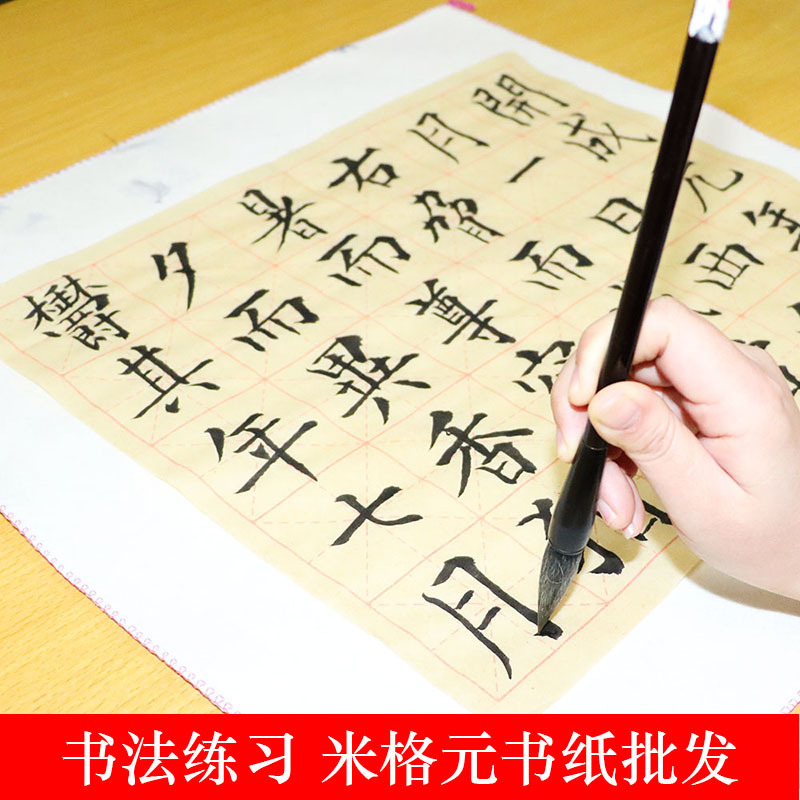 開成元年
月一日西
右脅而
暑而尊
夕而異香
鬱其年七月
书法练习 米格元书纸批发